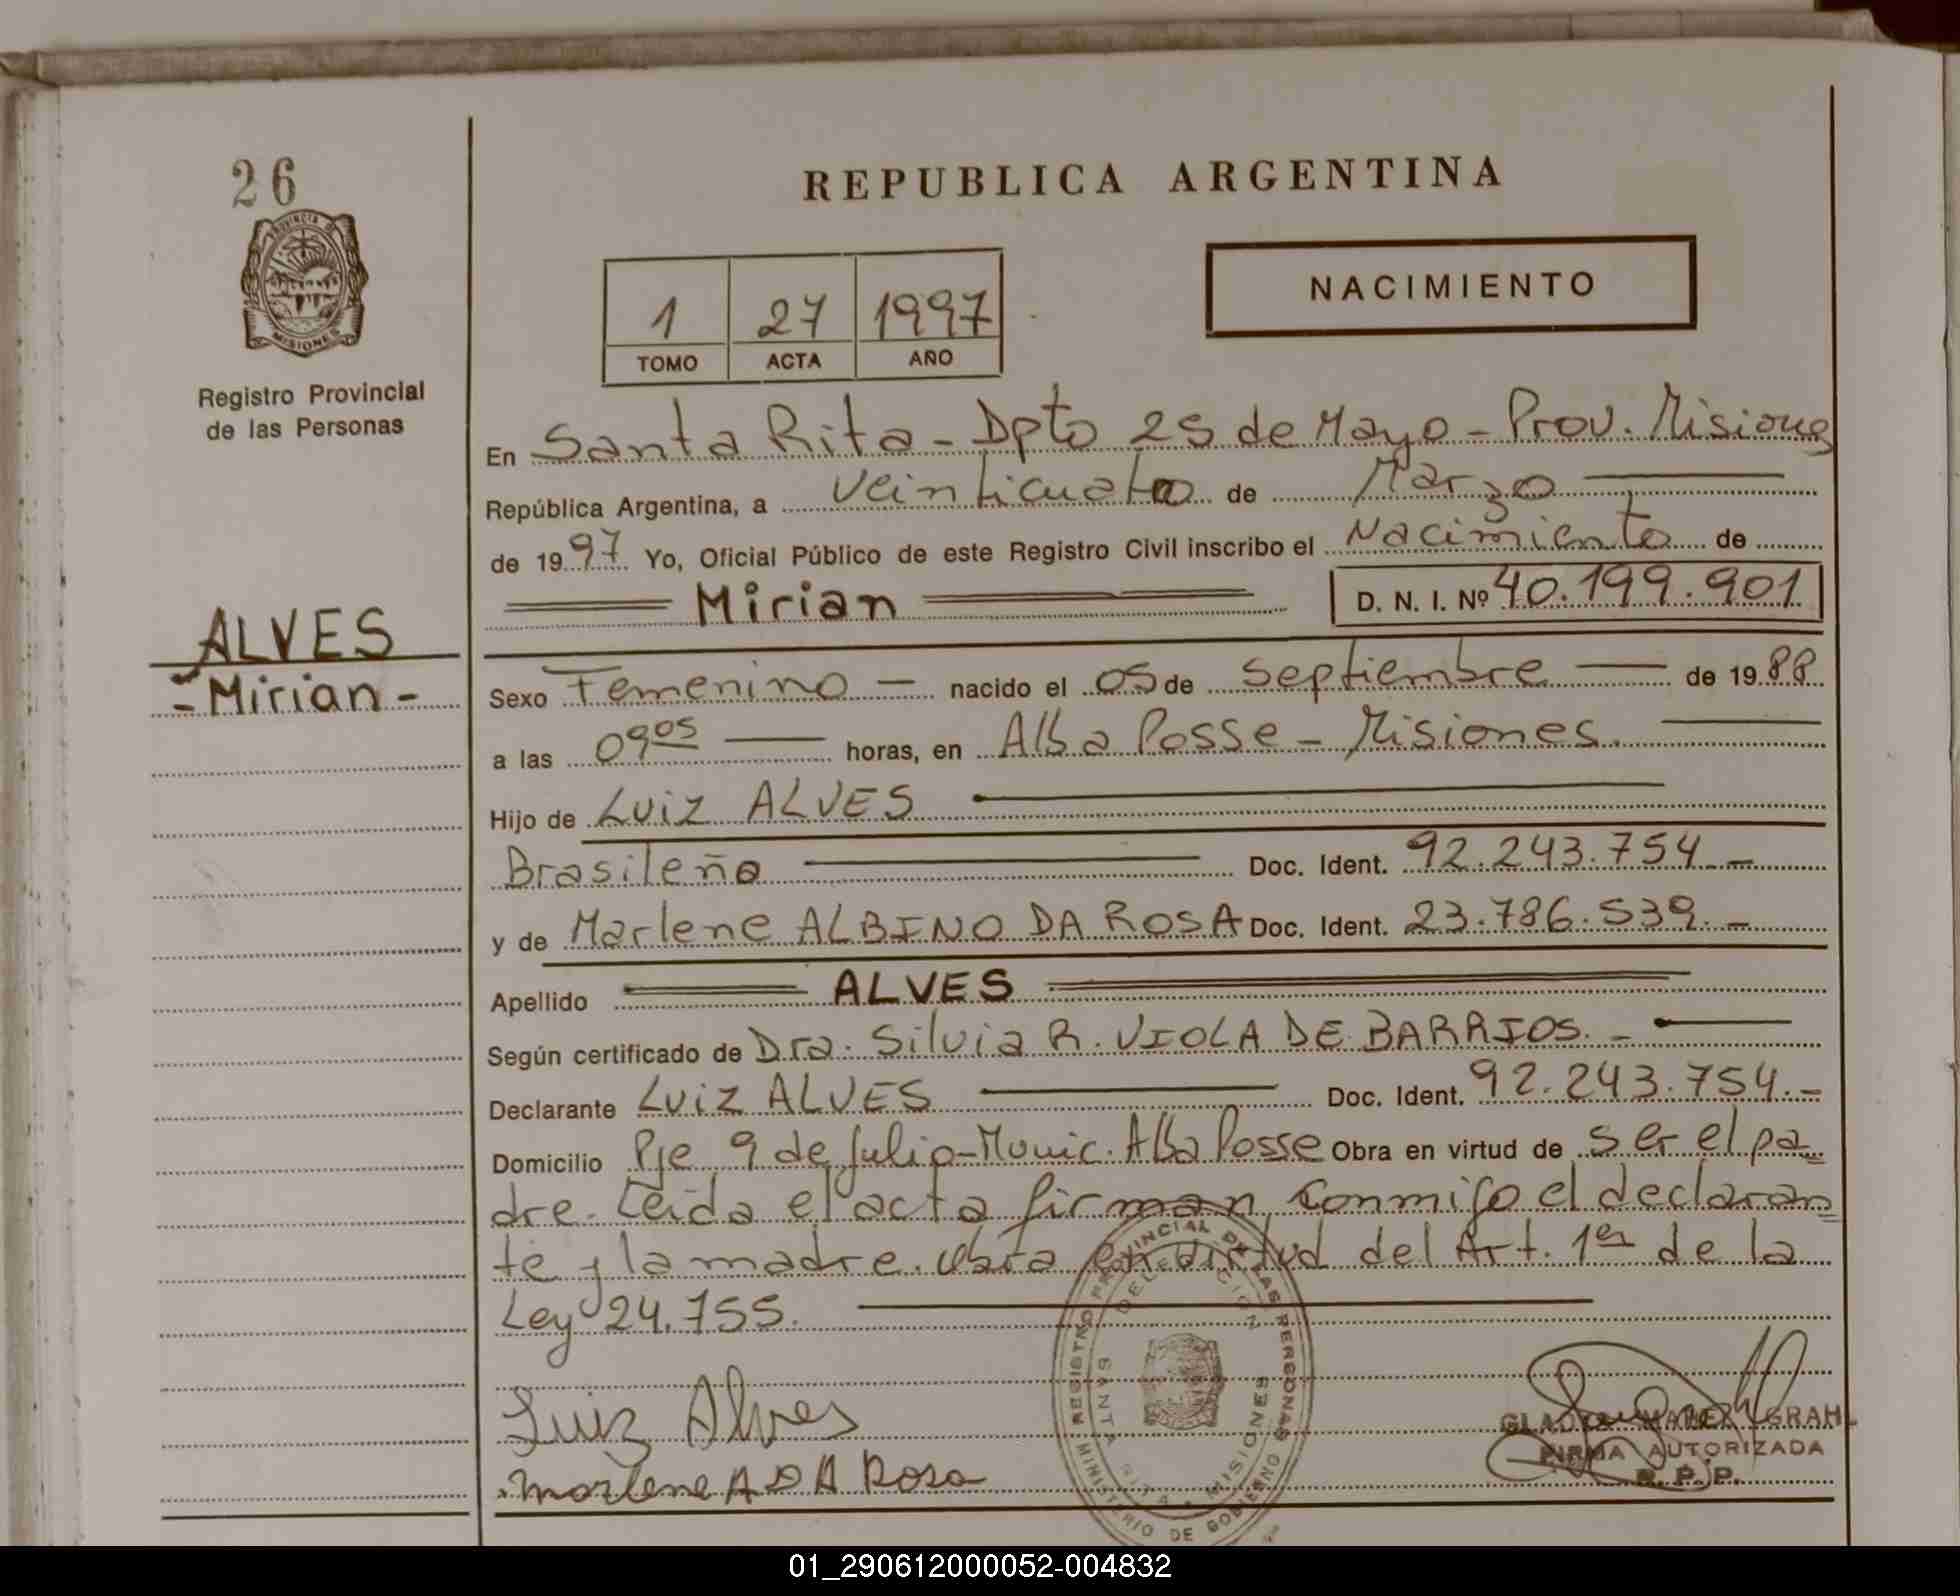 26
PROVINCIA DE
MISIONES
Registro Provincial
de las Personas
ALVES
-Mirian-
REPUBLICA ARGENTINA
1 27 1997
TOMO ACTA AÑO
NACIMIENTO
En Santa Rita - Dpto 25 de Mayo - Prov. Misiones
República Argentina, a veinticuatro de Marzo
de 1997 Yo, Oficial Público de este Registro Civil inscribo el Nacimiento de
Mirian D. N. I. Nº 40.199.901
Sexo Femenino - nacido el 05 de Septiembre de 1988
a las 09 05 horas, en Alba Posse - Misiones.
Hijo de Luiz ALVES
Brasileño Doc. Ident. 92.243.754.-
y de Marlene ALBINO DA ROSA Doc. Ident. 23.786.539.-
Apellido ALVES
Según certificado de Dra. Silvia R. VIOLA DE BARRIOS.-
Declarante Luiz ALVES Doc. Ident. 92.243.754.-
Domicilio Pje 9 de Julio-Munic. Alba Posse Obra en virtud de ser el pa=
dre. Leida el acta firman conmigo el declaran=
te y la madre. Obra en virtud del Art. 1er de la
Ley 24.755.
Luiz Alves
Marlene A D A Rosa
REGISTRO PROVINCIAL DE LAS PERSONAS
DELEGACION
SANTA RITA - MISIONES
MINISTERIO DE GOBIERNO
GRAHL
FIRMA AUTORIZADA
R. P. P.
01_290612000052-004832